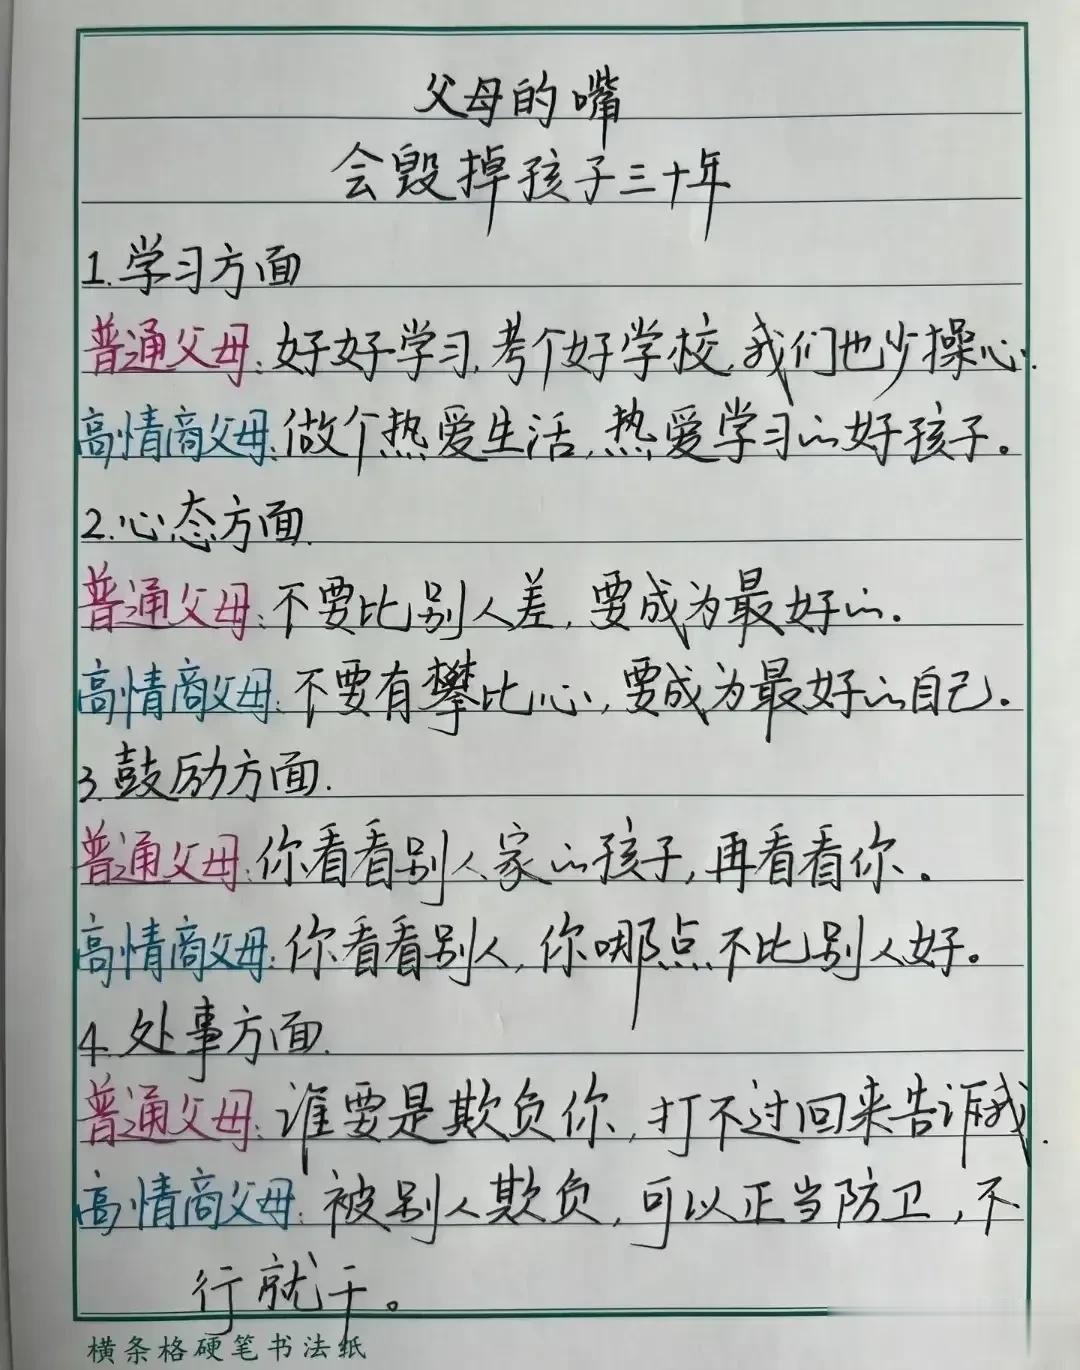 父母的嘴
会毁掉孩子三十年
1.学习方面
普通父母:好好学习,考个好学校,我们也少操心.
高情商父母:做个热爱生活,热爱学习的好孩子。
2.心态方面.
普通父母:不要比别人差,要成为最好的.
高情商父母:不要有攀比心,要成为最好的自己。
3.鼓励方面.
普通父母:你看看别人家的孩子,再看看你。
高情商父母:你看看别人,你哪点不比别人好。
4.处事方面.
普通父母:谁要是欺负你,打不过回来告诉我.
高情商父母:被别人欺负,可以正当防卫,不
行就干。
横条格硬笔书法纸